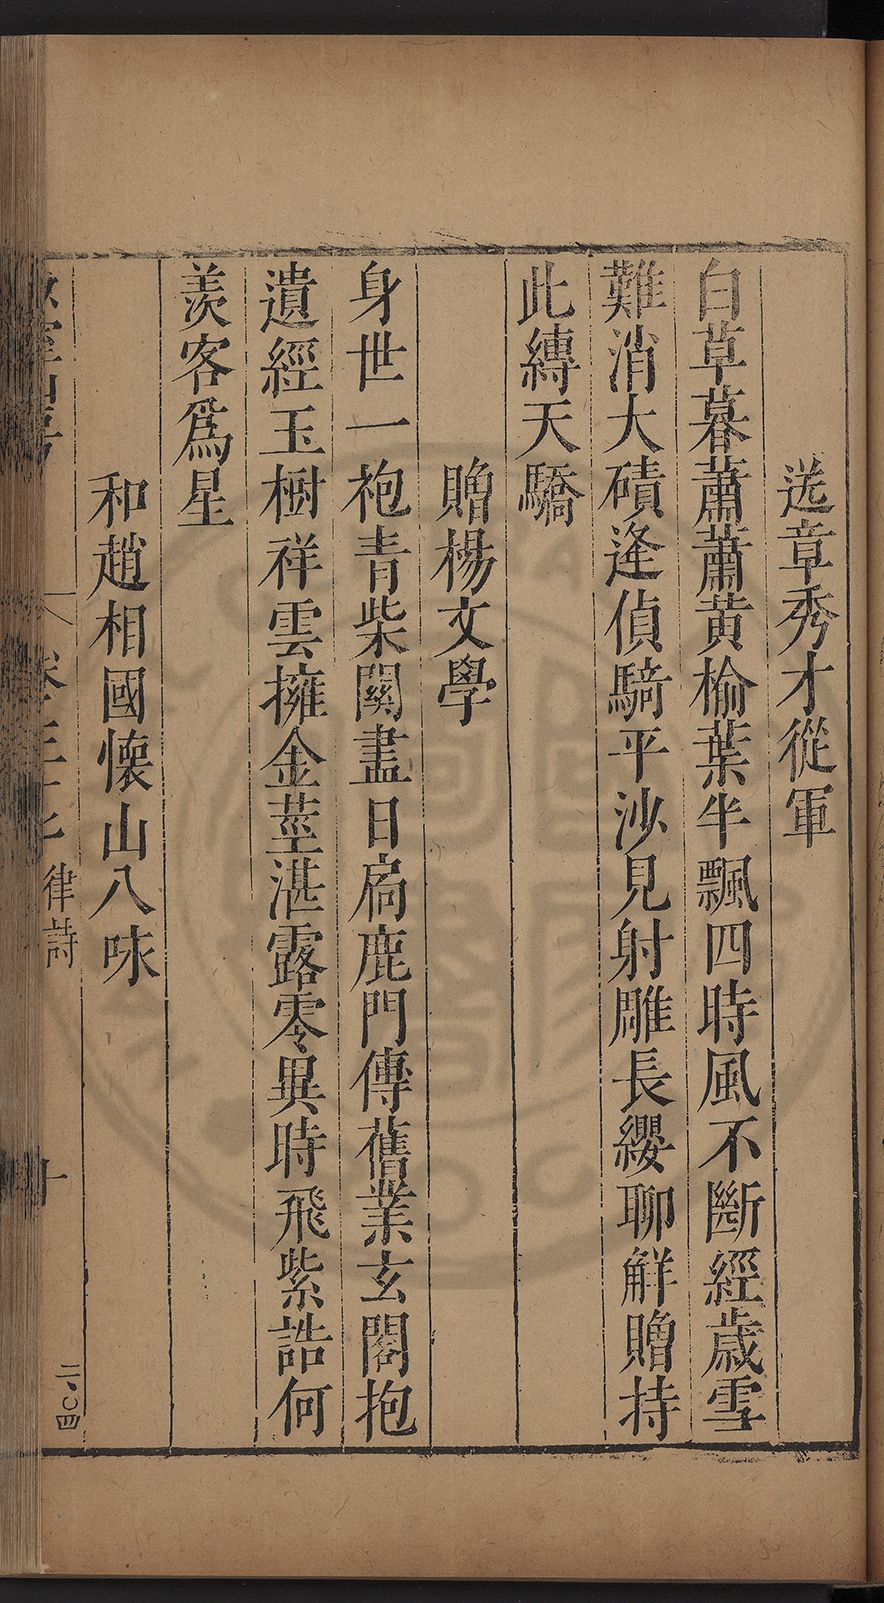 送章秀才從軍
白草暮蕭蕭黄榆葉半飄四時風不斷經歲雪
難消大磧逢偵騎平沙見射雕長纓聊觧贈持
此縛天驕
贈楊文學
身世一袍青柴關晝日扄鹿門傳舊業玄閣抱
遺經玉樹祥雲擁金莖湛露零異時飛紫誥何
羨客爲星
和趙相國懐山八味
律詩
十
二〇四